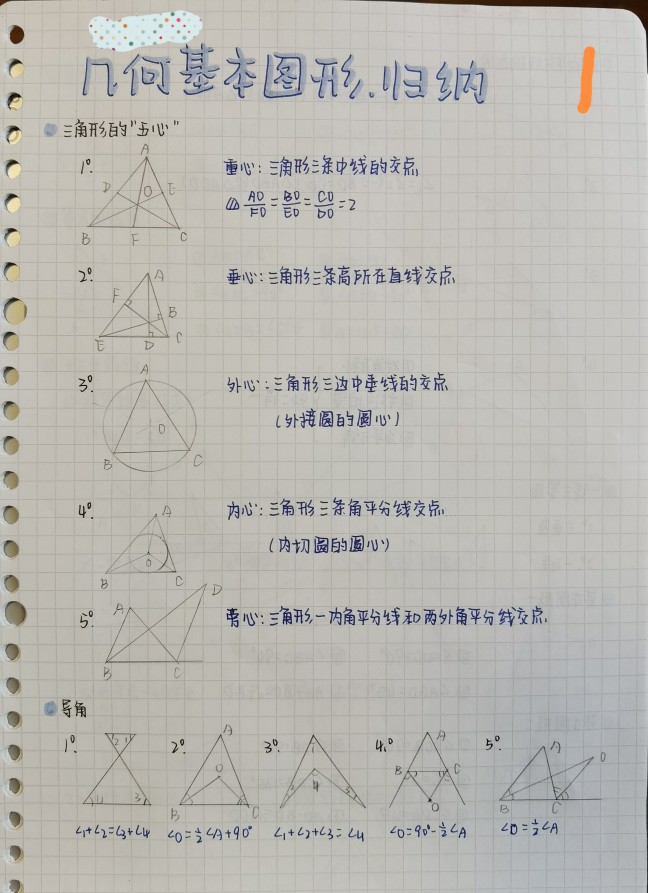 几何基本图形.归纳
1
三角形的"五心"
1° A D O E B F C
重心:三角形三条中线的交点
AO/FO=BO/EO=CO/DO=2
2° A F B E D C
垂心:三角形三条高所在直线交点
3° A O B C
外心:三角形三边中垂线的交点
(外接圆的圆心)
4° A O B C
内心:三角形三条角平分线交点
(内切圆的圆心)
5° A D B C
旁心:三角形一内角平分线和两外角平分线交点
导角
1° 2 1 4 3
∠1+∠2=∠3+∠4
2° A O B C
∠O=1/2∠A+90°
3° 1 4 2 3
∠1+∠2+∠3=∠4
4° A B C O
∠O=90°-1/2∠A
5° A D B C
∠D=1/2∠A